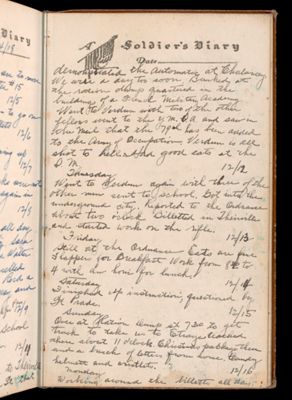 Diary
A Soldier's Diary
Date
demonstrated the Automatic at Chalancey
We were a day too soon Bunked at
the ration dump quartered in the
building of a French Military Academy
Went to Verdun with two of the other
fellers went to the Y.M.C.A. and saw in
the Mail that the 79th has been added
to the Army of Occupation. Verdun is all
shot to hell. Had good eats at the
Q.M.
Thursday 12/12
Went to Verdun again with three of the
other men sent to school. Got into the
underground city, reported to the Ordnance
about two o'clock Billeted in Thierville
and started work on the rifle.
Friday 12/13
Still at the Ordnance Eats are fine
Flapper for Breakfast Work from 8 to
4 with an hour for lunch
Saturday 12/14
Finished up instruction, questioned by
Lt Prade.
Sunday 12/15
Over at Ration dump at 7:30 to get
truck to take us to Etraye, reached
there about 11 o'clock Christmas package there
and a bunch of letters from home. Candy
helmet and wristlets.
Monday 12/16
Working around the billets all day